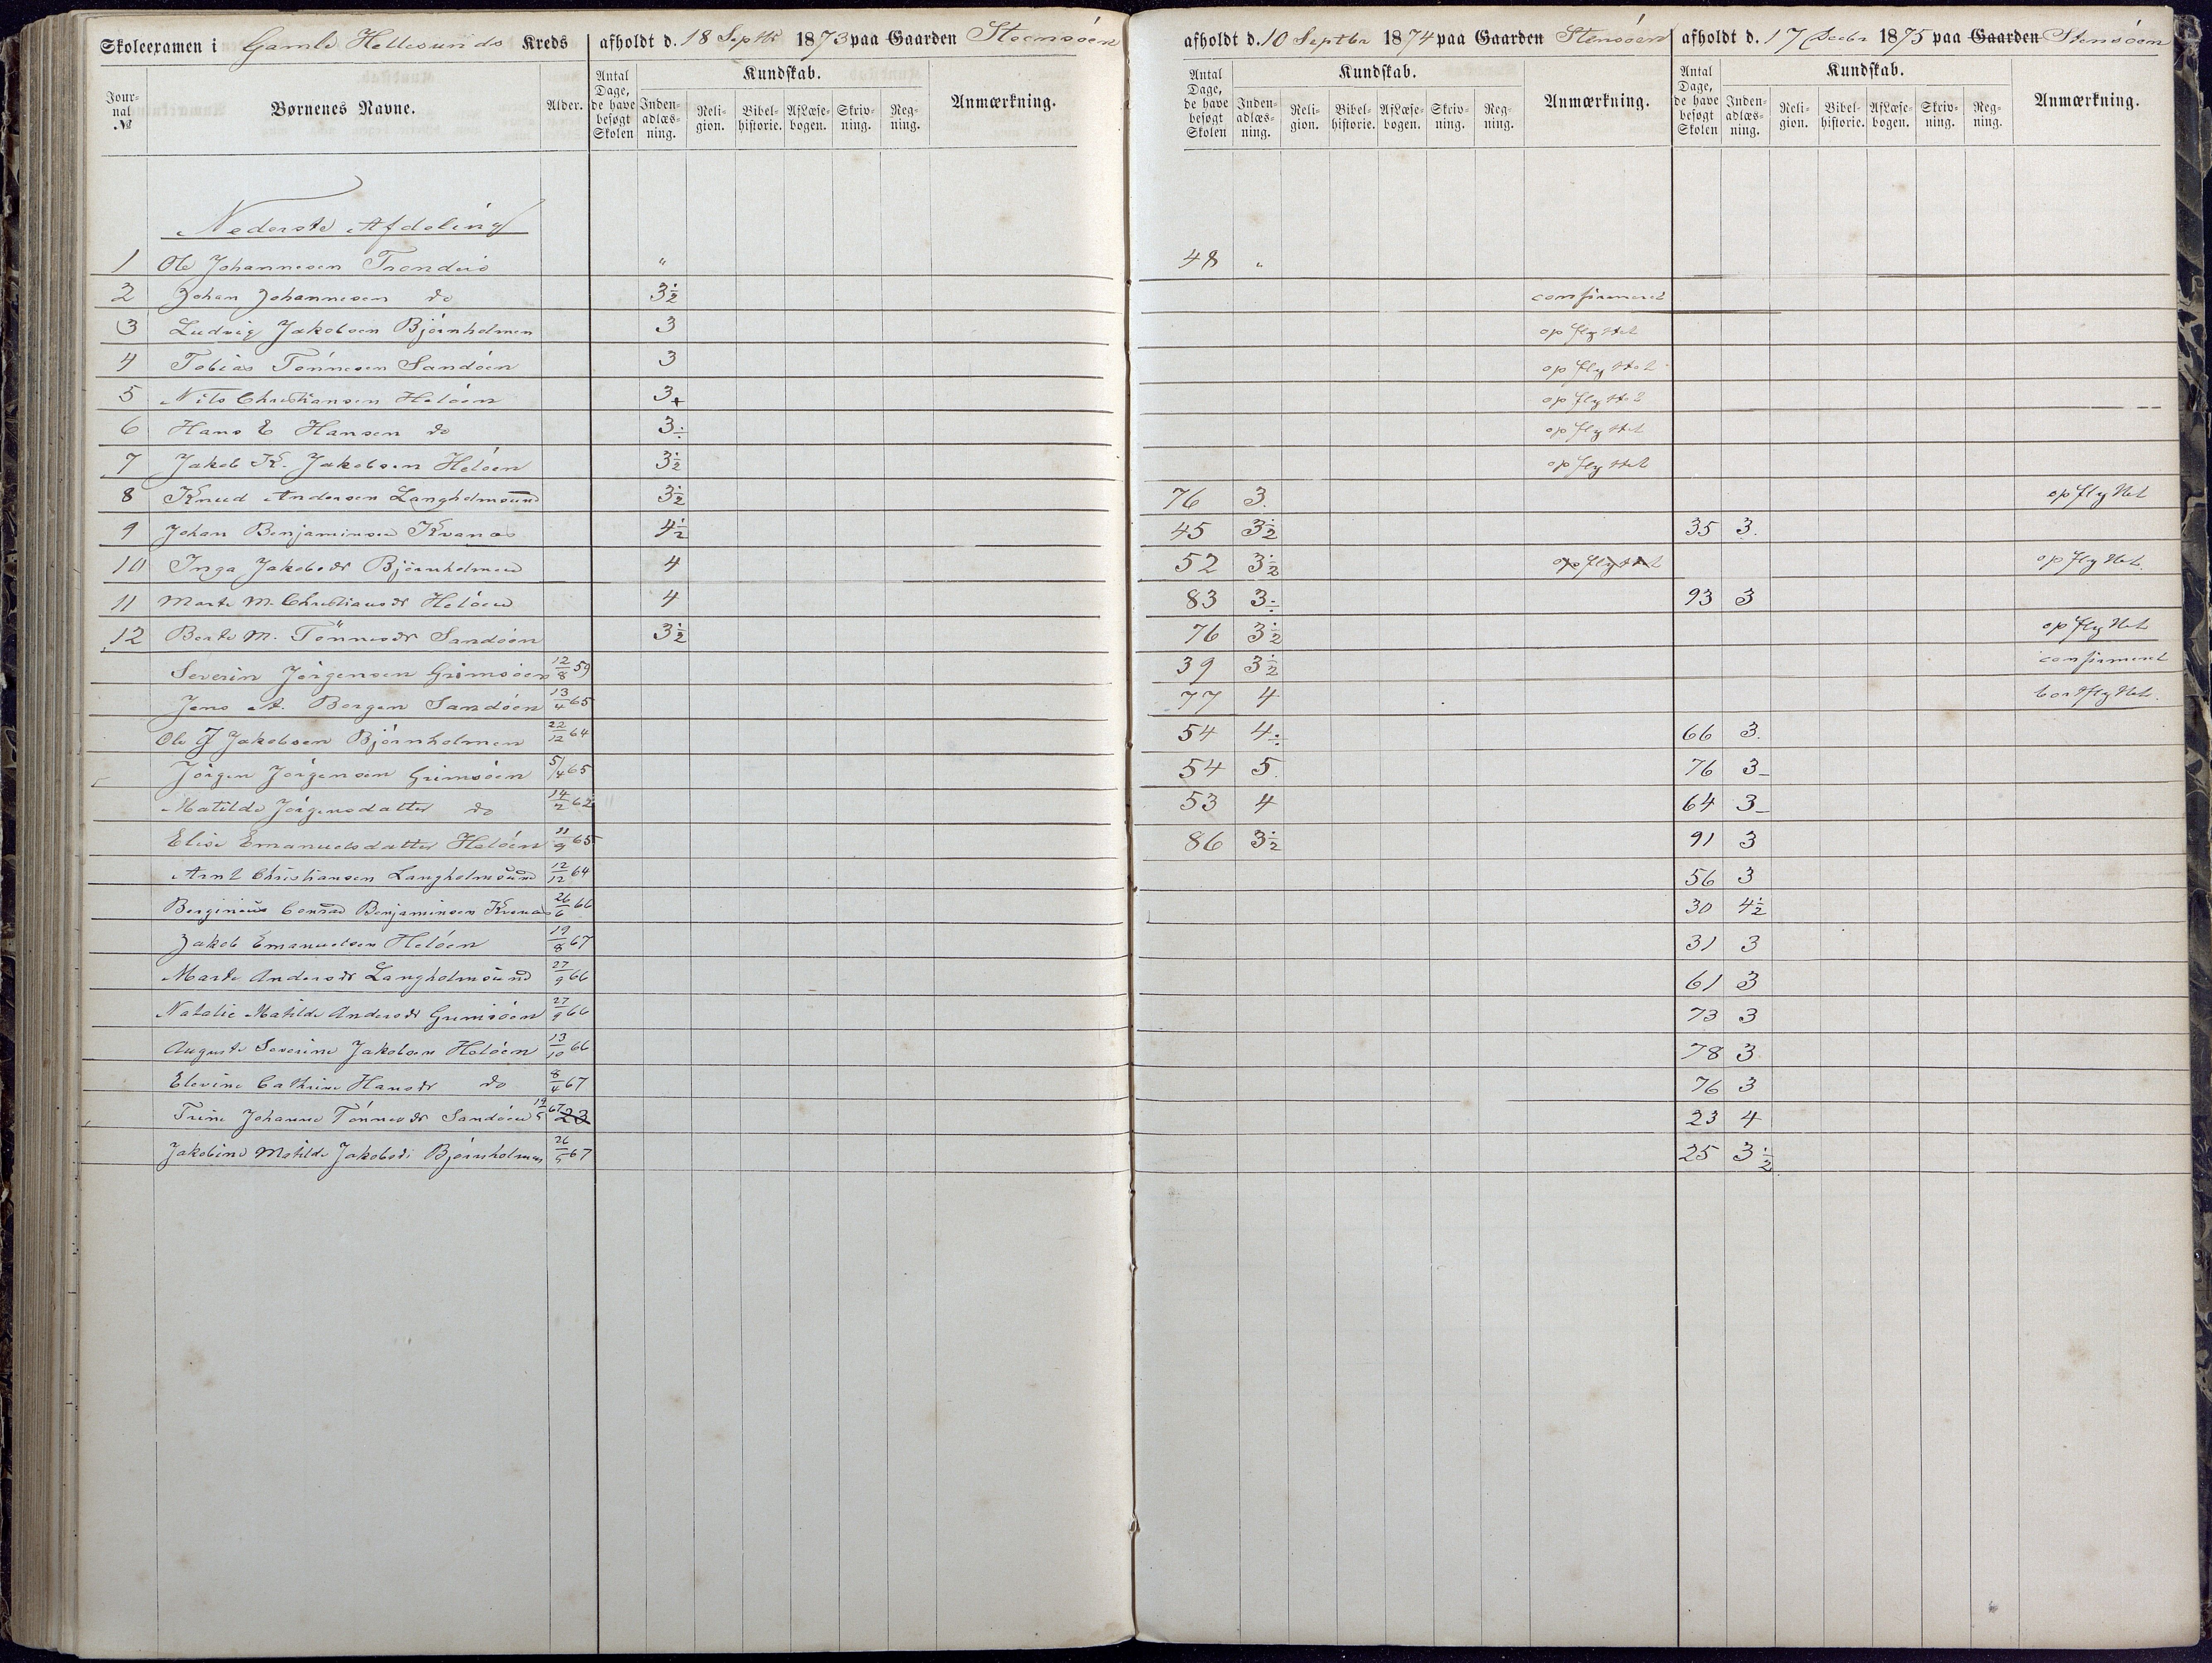 Skoleexamen i Gamle Hellesunds Kreds afholdt d. 18 Septbr 1873 paa Gaarden Steensöen afholdt d. 10 Septbr 1874 paa Gaarden Stensöen afholdt d. 17 Decbr 1875 paa Gaarden Stensöen
Journal № Børnenes Navne. Alder. Antal Dage, de have besøgt Skolen Kundskab. Indenadlæsning. Religion. Bibelhistorie. Af Læsebogen. Skrivning. Regning. Anmærkning. Antal Dage, de have besøgt Skolen Kundskab. Indenadlæsning. Religion. Bibelhistorie. Af Læsebogen. Skrivning. Regning. Anmærkning. Antal Dage, de have besøgt Skolen Kundskab. Indenadlæsning. Religion. Bibelhistorie. Af Læsebogen. Skrivning. Regning. Anmærkning.
Nederste Afdeling
1 Ole Johannesen Trondeis " 48 "
2 Johan Johannesen do 3½ confirmeret
3 Ludvig Jakobsen Björnholmen 3 opflyttet
4 Tobias Tönnesen Sandöen 3 opflyttet
5 Nils Christiansen Helöen 3+ opflyttet
6 Hans E Hansen do 3÷ opflyttet
7 Jakob K. Jakobsen Helöen 3½ opflyttet
8 Knud Andersen Langholmsund 3½ 76 3. opflyttet
9 Johan Benjaminsen Kvanæs 4½ 45 3½ 35 3.
10 Inga Jakobsdr Björnholmen 4 52 3½ opflyttet opflyttet.
11 Marte M. Christiansdr Helöen 4 83 3÷ 93 3
12 Berte M. Tönnesdr Sandöen 3½ 76 3½ opflyttet
Severin Jörgensen Grimsöen 12/8 59 39 3½ confirmeret
Jens A. Bergen Sandöen 13/4 65 77 4 bortflyttet.
Ole G Jakobsen Björnholmen 22/12 64 54 4÷ 66 3.
Jörgen Jörgensen Grimsöen 5/4 65 54 5. 76 3-
Matilde Jörgensdatter do 14/2 62 53 4 64 3-
Elise Emanuelsdatter Helöen 11/9 65 86 3½ 91 3
Arnt Christiansen Langholmsund 12/12 64 56 3
Berginius Conrad Benjaminsen Kvanæs 26/6 66 30 4½
Jakob Emanuelsen Helöen 19/8 67 31 3
Marte Andersdr Langholmsund 27/9 66 61 3
Natalie Matilde Andersdr Grimsöen 27/9 66 73 3
Auguste Severine Jakobsen Helöen 13/10 66 78 3
Elevine Cathrine Hansdr do 8/4 67 76 3
Trine Johanne Tönnesdr Sandöen 19/5 67 23 23 4
Jakobine Matilde Jakobsdr Björnholmen 26/5 67 25 3½